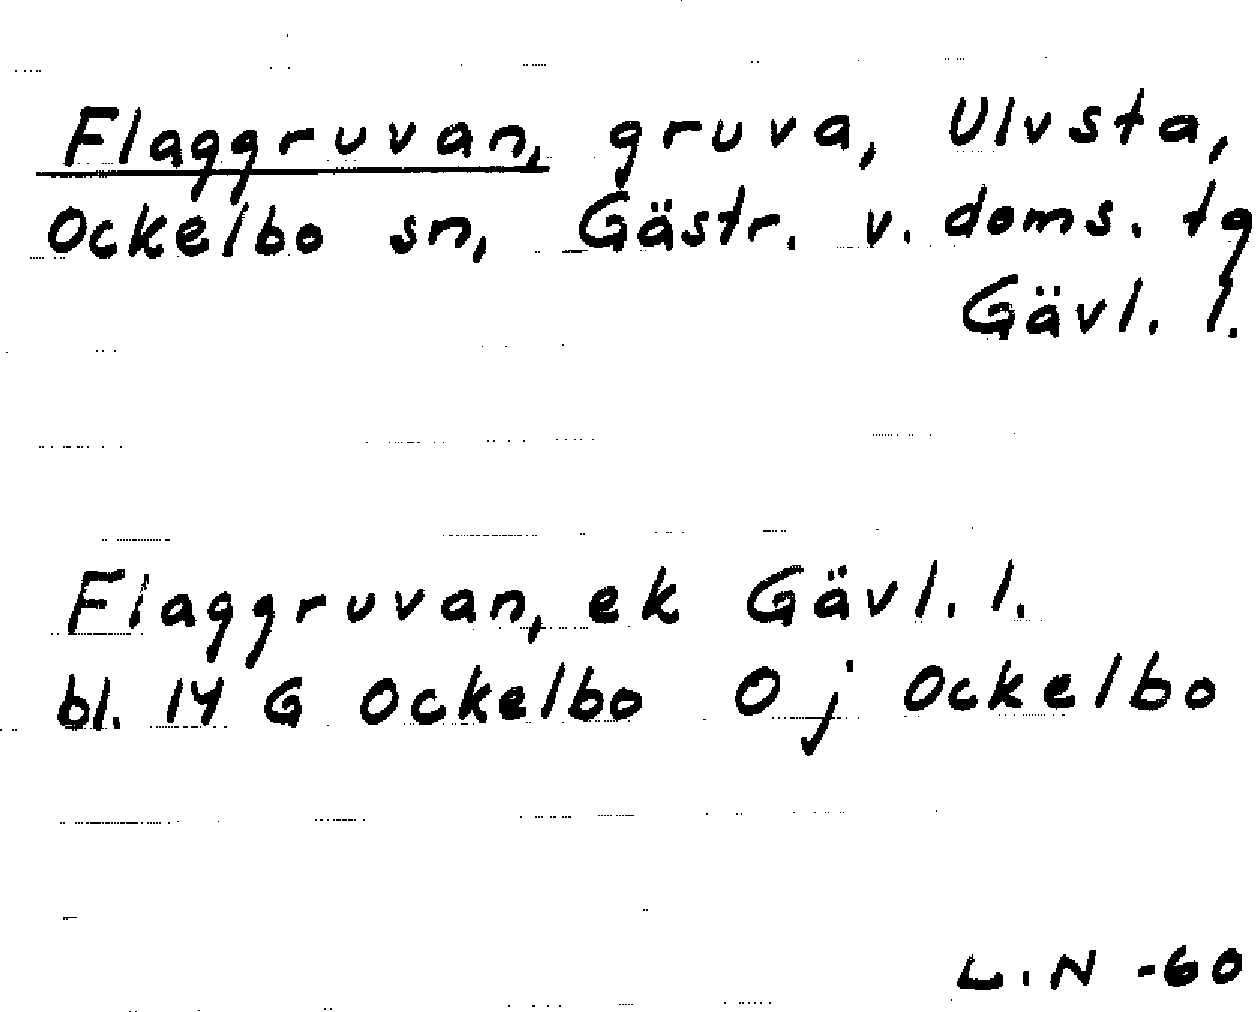 Flaggruvan, gruva, Ulvsta,
Ockelbo sn, Gästr. v. doms. tg
Gävl. l.
Flaggruvan, ek Gävl. l.
bl. 14 G Ockelbo 0 j Ockelbo
L.N -60